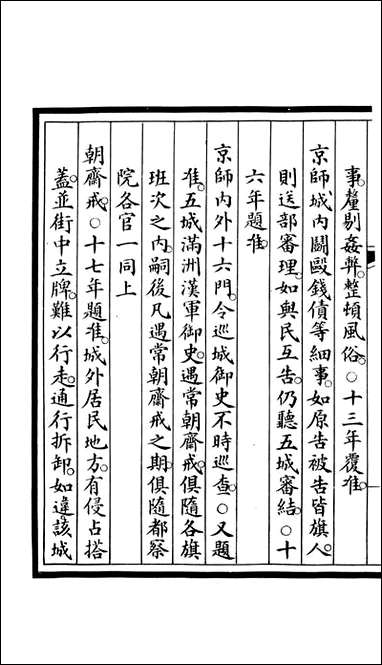 事。釐剔姦弊。整頓風俗。○十三年覆准。
京師城内鬬毆錢債等細事。如原告被告皆旗人。
則送部審理。如與民互告。仍聽五城審結。○十
六年題准。
京師内外十六門。令巡城御史不時巡查。○又題
准。五城滿洲漢軍御史。遇常朝齋戒。俱隨各旗
班次之内。嗣後凡遇常朝齋戒之期。俱隨都察
院各官一同上
朝齋戒。○十七年題准。城外居民地方。有侵占搭
蓋。並街中立牌。難以行走。通行拆卸。如違。該城